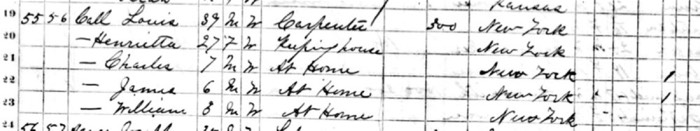 Kansas
19 55 56 Call Louis 39 M W Carpenter 300 New York
20 — Henrietta 27 F W Keeping house New York
21 — Charles 7 M W At Home New York 1
22 — James 6 M W At Home New York 1
23 — William 3 M W At Home New York
24 56 57